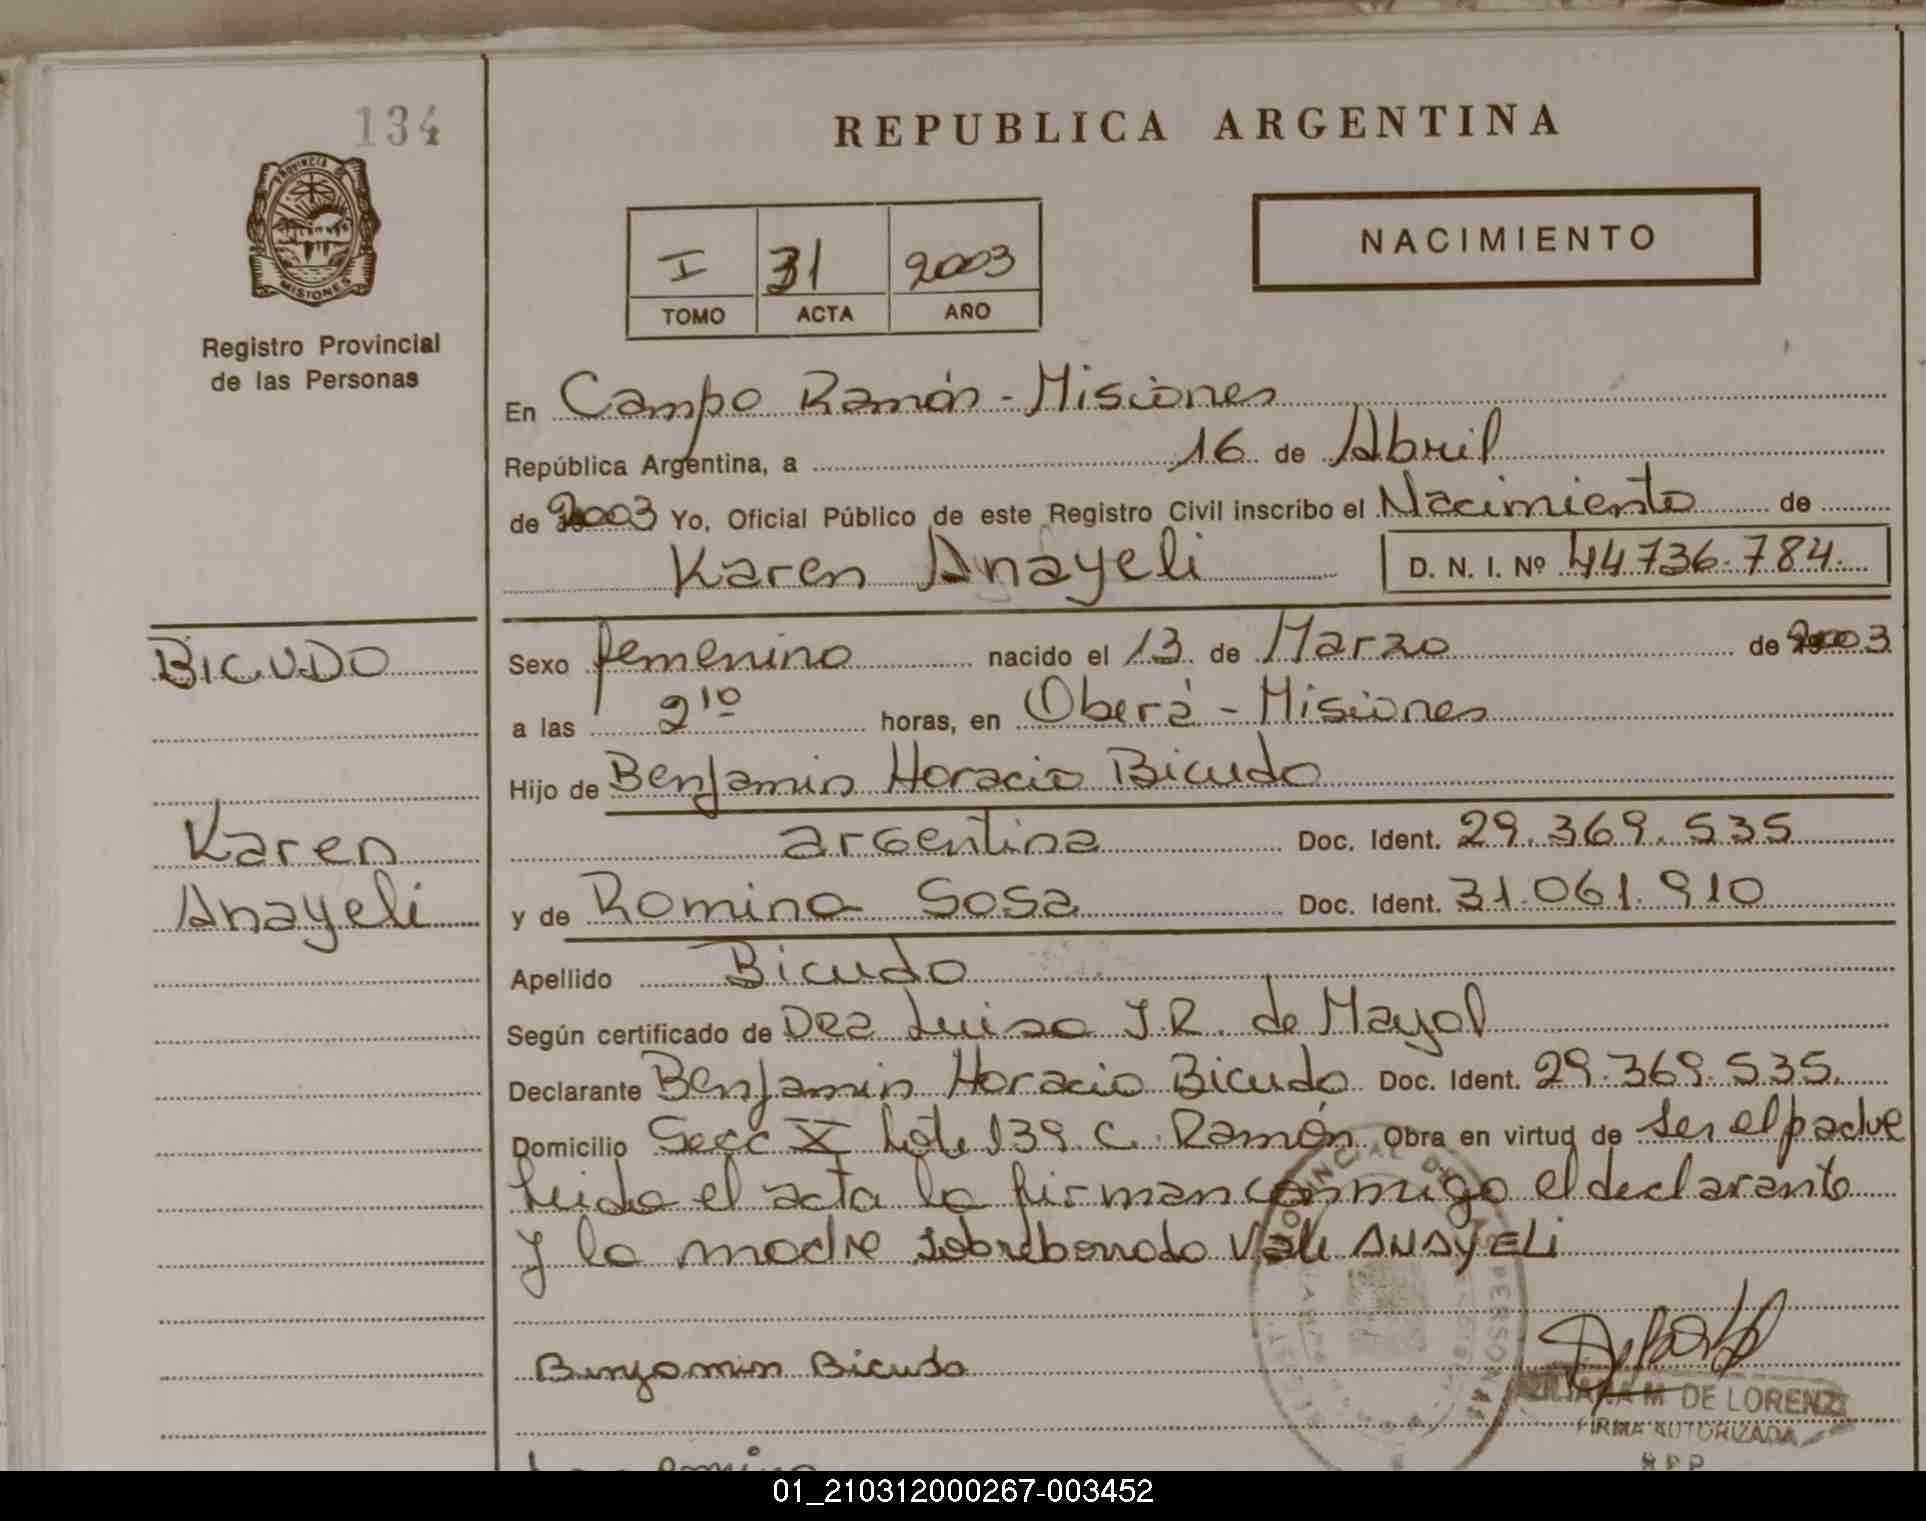 134
PROVINCIA DE
MISIONES
Registro Provincial
de las Personas
REPUBLICA ARGENTINA
I 31 2003
TOMO ACTA AÑO
NACIMIENTO
En Campo Ramón - Misiones
República Argentina, a 16 de Abril
de 2003 Yo, Oficial Público de este Registro Civil inscribo el Nacimiento de
Karen Anayeli D. N. I. Nº 44736.784.
BICUDO
Karen
Anayeli
Sexo femenino nacido el 13 de Marzo de 2003
a las 2¹⁰ horas, en Oberá - Misiones
Hijo de Benjamin Horacio Bicudo
argentina Doc. Ident. 29.369.535
y de Romina Sosa Doc. Ident. 31.061.910
Apellido Bicudo
Según certificado de Dra Luisa J.R. de Mayol
Declarante Benjamin Horacio Bicudo Doc. Ident. 29.369.535.
Domicilio Secc X Lote 139 C. Ramón Obra en virtud de ser el padre
Leida el acta la firman conmigo el declarante
y la madre sobreborrado Vale ANAYELi
Benjamin Bicudo
LILIANA M DE LORENZI
FIRMA AUTORIZADA
R P P
Romina
01_210312000267-003452